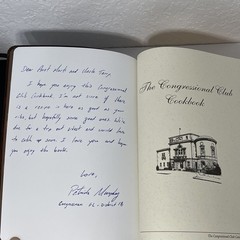 Dear Aunt Marti and Uncle Terry,
I hope you enjoy this Congressional
Club Cookbook. I'm not sure if there
is a recipe in here as good as your
ribs, but hopefully some good ones. We're
due for a trip out west and would love
to catch up soon. I love you and hope
you enjoy the book.
Love,
Patrick Murphy
Congressman FL-District 18
The Congressional Club
Cookbook
The Congressional Club